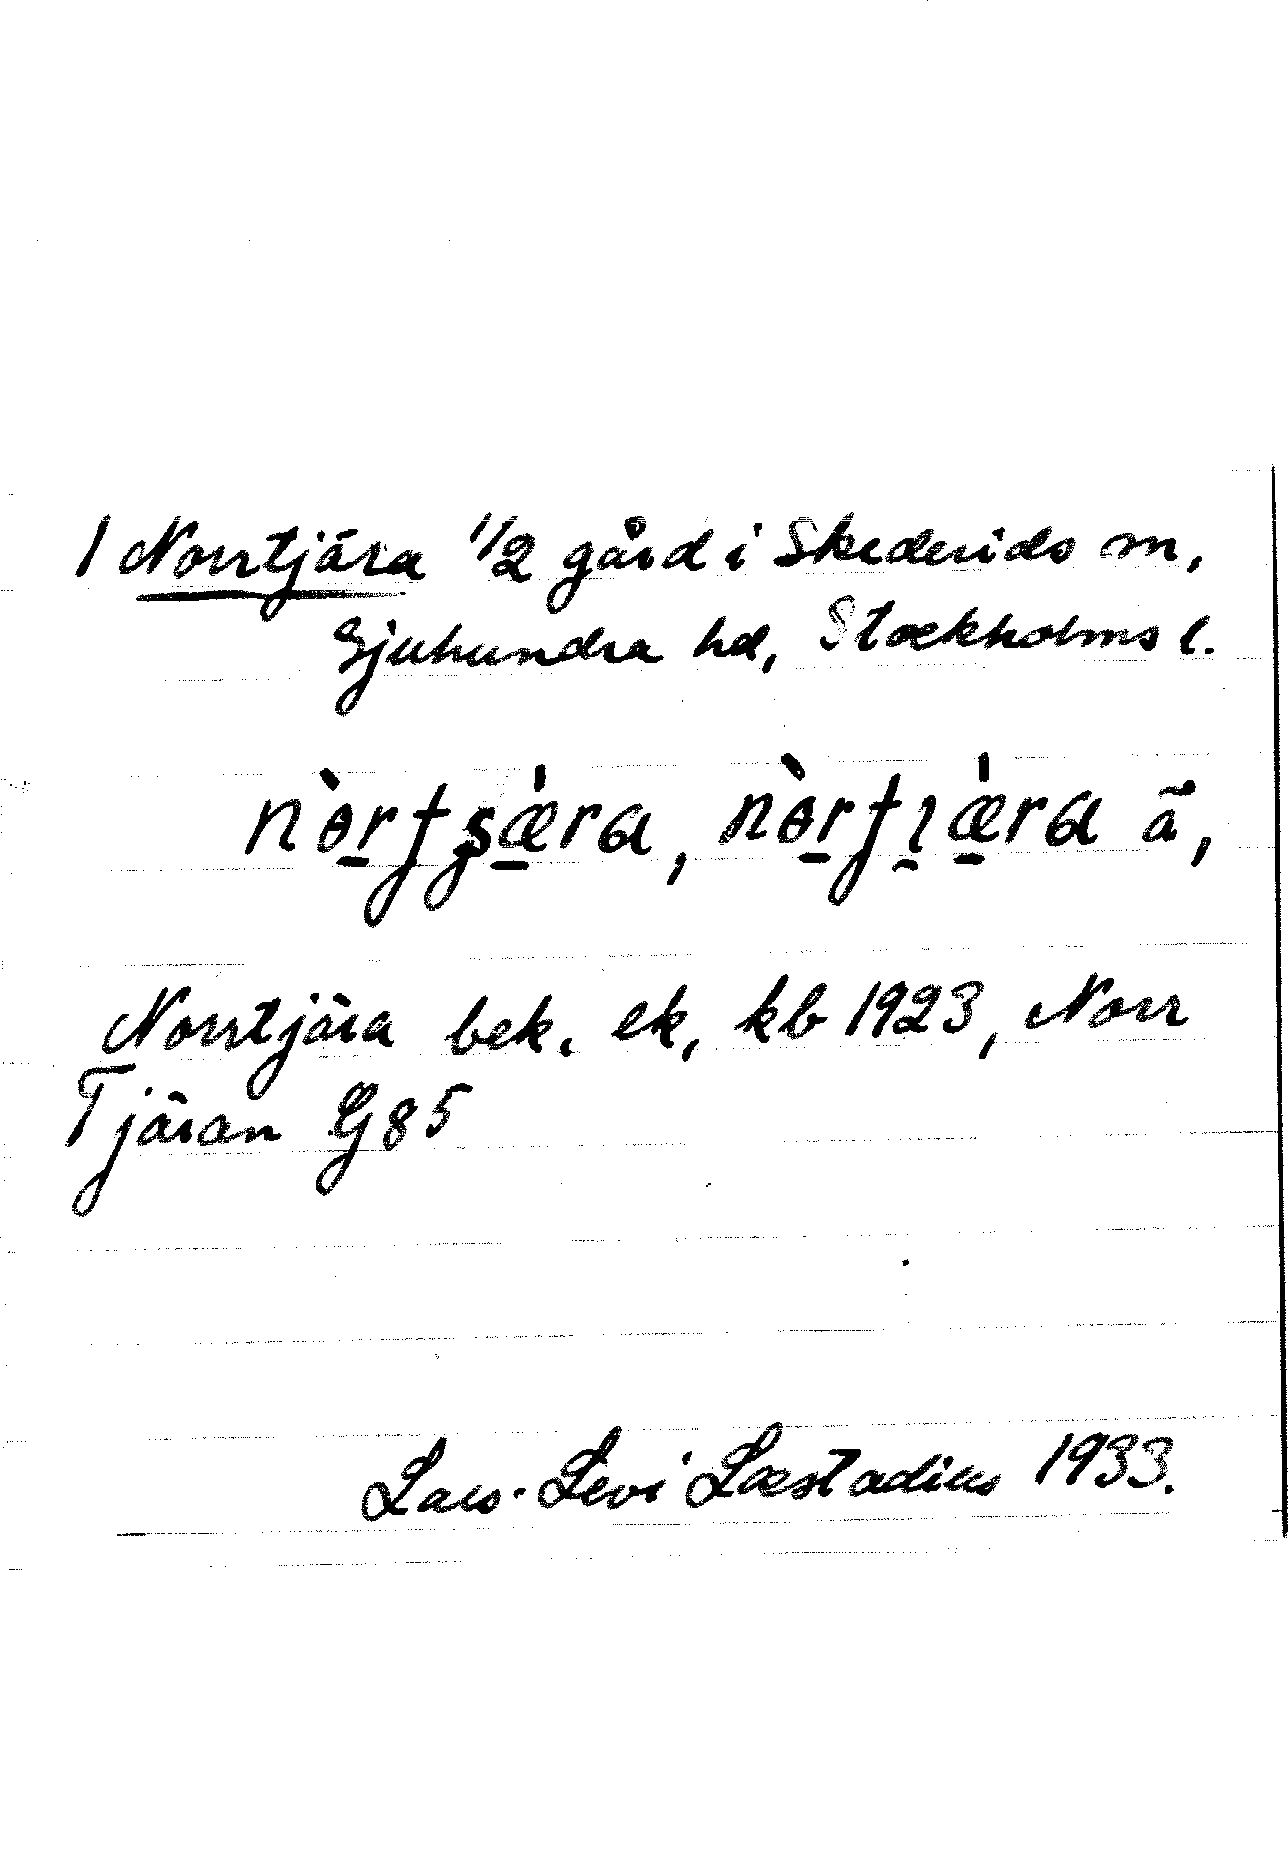 1 Norrtjära 1/2 gård i Skederids sn,
Sjuhundra hd, Stockholms l.
nɵ̀rtʂæ̀ra, nɵ̀rtɩæ̀ra ã,
Norrtjära bek. ek, kb 1923, Norr
Tjäran G85
Lars-Levi Læstadius 1933.